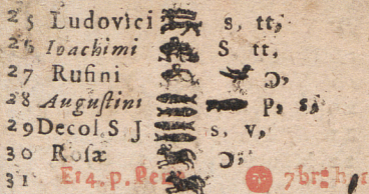 25 Ludovici s, tt,
26 Ioachimi S tt,
27 Rufini ɔ,
28 Augustini p, s,
29 Decol S J s, v,
30 Rosæ ɔ,
31 Et 4. p. 7br: